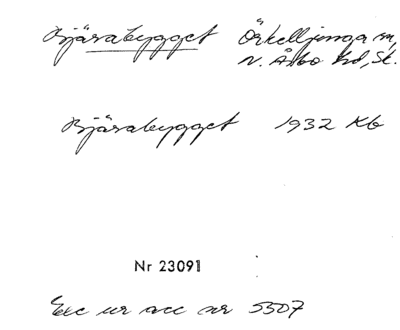 Bjärabygget Örkelljunga sn,
N. Åsbo hd, Sk.
Bjärabygget 1932 Kb
Nr 23091
Exc ur acc nr 5507